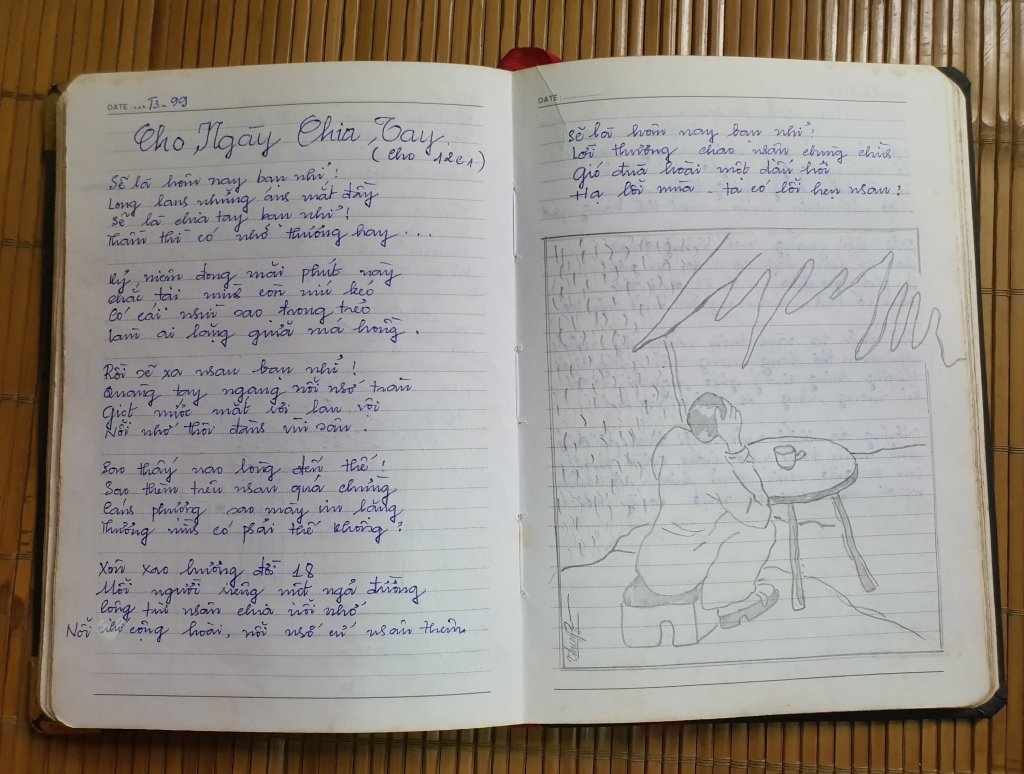 DATE:... I3-99
Cho Ngày Chia Tay
(cho 12C1)
Sẽ là hôm nay bạn nhỉ!
Long lanh những ánh mắt đầy
Sẽ là chia tay bạn nhỉ!
Thầm thì có nhớ thương hay...
Kỷ niệm đong mãi phút này
chắc tại mình còn níu kéo
Có cái nhìn sao trong trẻo
Làm ai lặng giữa má hồng.
Rồi sẽ xa nhau bạn nhỉ!
Quãng tay ngang nỗi nhớ tràn
Giọt nước mắt rơi lan vội
Nỗi nhớ thôi đành vùi sâu.
Sao thấy nao lòng đến thế!
Sao thèm trêu nhau quá chừng
Cành phượng sao mấy im lặng
Thương mình có phải thế không?
Xôn xao hương đời 18
Mỗi người riêng một ngả đường
lòng tui nhân chia nỗi nhớ
Nỗi nhớ cộng hoài, nỗi nhớ cứ nhân thêm.
DATE:
Sẽ là hôm nay bạn nhỉ!
Lời thương chao nhân chung chia
Gió đùa hoài một dấu hỏi
Hạ lỗi mùa - ta có lỗi hẹn nhau?